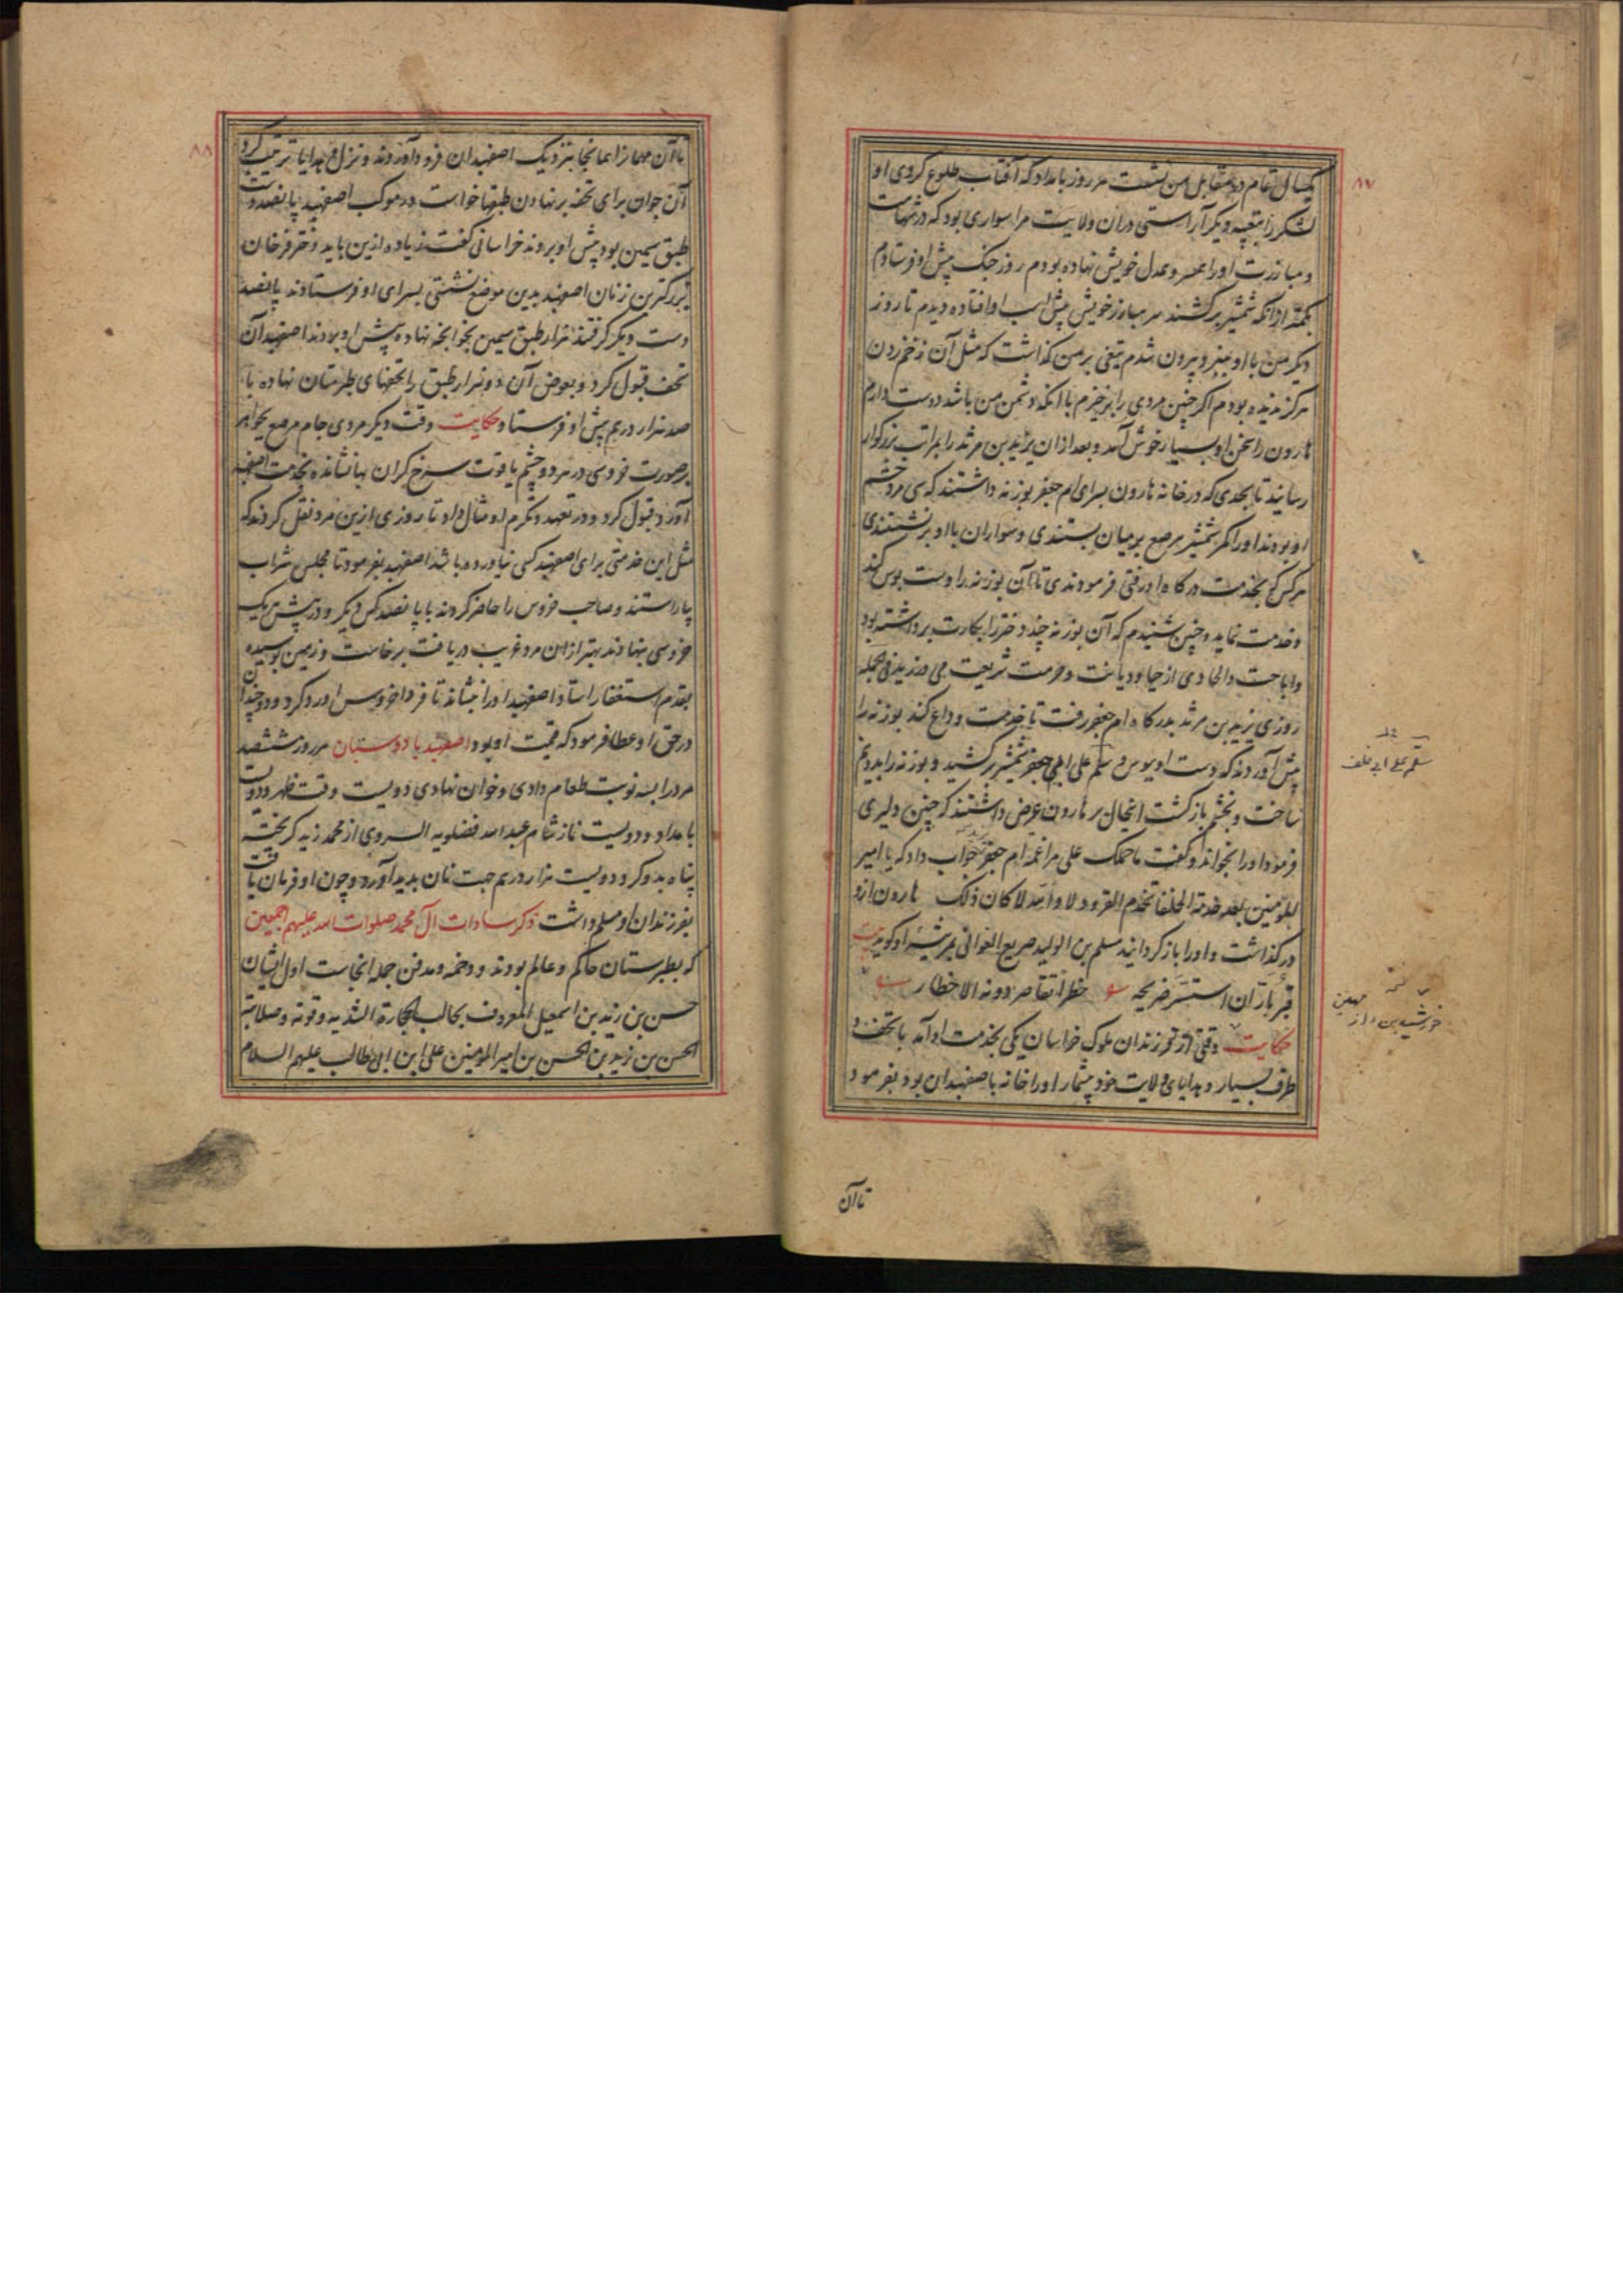 ۸۷
یکسال تمام در مقابل من نشست هر روز بامداد که آفتاب طلوع کردی او
لشکر را بتعبیه دیگر آراستی در آن ولایت مرا سواری بود که در شهامت
و مبارزت او را عمر و عدل خویش نهاده بودم روز جنک پیش او فرستادم
شمشیر برکشند سر مبارز خویش پیش اسب او افتاده دیدم تا روز
دیکر من با او بنبرد بیرون شدم تیغی بر من کذاشت که مثل آن زخم زدن
هرکز ندیده بودم اکر چنین مردی را برخیزم با آنکه دشمن من باشد دوست دارم
هارون را سخن او بسیار خوش آمد و بعد از ان یزید بن مرثد را بمراتب بزرکوار
رسانید تا بحدی که در خانه هارون بسرای ام جعفر بوزنه داشتند که سی مرد حشم
او بودند او را کمر شمشیر مرصع بر میان بستندی و سواران با او برنشستندی
هر کس که بخدمت درکاه او رفتی فرمودندی تا آن بوزنه را دست بوس کند
و خدمت نماید و چنین شنیدم که آن بوزنه چند دختر را بکارت برداشته بود
و اباحت و الحادی از حیا و دیانت و حرمت شریعت می ورزیدند فی الجمله
روزی یزید بن مرثد بدرکاه ام جعفر رفت تا خدمت و وداع کند بوزنه را
پیش آوردند که دست او ببوس و سلم علی ابی جعفر شمشیر برکشید و بوزنه را بدو نیم
ساخت و بخشم بازکشت این حال بر هارون عرض داشتند که چنین دلیری
فرمود او را بخواند و کفت ما حملک علی مراغمة ام جعفر جواب داد که یا امیر
المؤمنین بعد خدمة الخلفا نخدم القرود لا و الله لا کان ذلک هارون ازو
درکذاشت و او را باز کردانید مسلم بن الولید صریع الغوانی مرثیه او کوید بیت
قبر باران استسر ضریحه خطرا تقاصر دونه الاخطار
حکایت وقتی از فرزندان ملوک خراسان یکی بخدمت او آمد با تحف و
طرف بسیار و هدایای ولایت خود بیشمار او را خانه باصفهبدان بود بفرمود
تا آن
سلم علی ابی خلف
خورشید بن داز
۸۸
تا آن مهمان را همانجا بنزدیک اصفهبدان فرود آوردند و نزل و هدایا ترتیب کرد
آن جوان برای تحفه بر نهادن طبقها خواست در موکب اصفهبد پانصد دست
طبق سیمین بود پیش او بردند خراسانی کفت زیاده ازین باید دختر فرخان
بزرکترین زنان اصفهبد بدین موضع نشستی بسرای او فرستادند پانصد
دست دیکر کرفتند هزار طبق سیمین بخوانچه نهاده پیش او بردند اصفهبد آن
تحف قبول کرد و بعوض آن دو هزار طبق را تحفهای طبرستان نهاده با
صد هزار درم پیش او فرستاد حکایت وقت دیکر مردی جام مرصع بجواهر
بر صورت خروسی در هر دو چشم یاقوت سرخ کران بها نشانده بخدمت اصفهبد
آورد قبول کرد و در تعهد و تکرم او مثال داد تا روزی ازین مرد نقل کردند که
مثل این خدمتی برای اصفهبد کسی نیاورده باشد اصفهبد بفرمود تا مجلس شراب
بیاراستند و صاحب خروس را حاضر کردند با پانصد کس دیکر و در پیش هر یک
خروسی بنهادند بهتر از ان مرد غریب دریافت برخاست و زمین بوسیده
بقدم استغفار استاد اصفهبد او را بنشاند تا فردا خروس او رد کرد و دو چندان
در حق او عطا فرمود که قیمت او بود اصفهبد بادوستبان هر روز ششصد
مرد را بسه نوبت طعام دادی و خوان نهادی دویست وقت ظهر و دویست
بامداد و دویست نماز شام عبد الله فضلویه السروی از محمد زید کریخته
پناه بدو کرد و دویست هزار درم جهت نان پدید آورد و چون او فرمان یافت
بفرزندان او مسلم داشت ذکر سادات آل محمد صلوات الله علیهم اجمعین
که بطبرستان حاکم و عالم بودند و دخمه و مدفن جمله انجاست اول ایشان
حسن بن زید بن اسمعیل المعروف بحالب الحجارة لشدته و قوته و صلابته
الحسن بن زید بن الحسن بن امیر المؤمنین علی ابن ابی طالب علیهم السلام